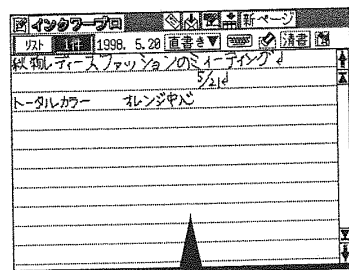 インクワープロ 新ページ
リスト 1件 1998. 5.20 直書き▼ 清書
秋物レディースファッションのミィーティング
5/21
トータルカラー オレンジ中心